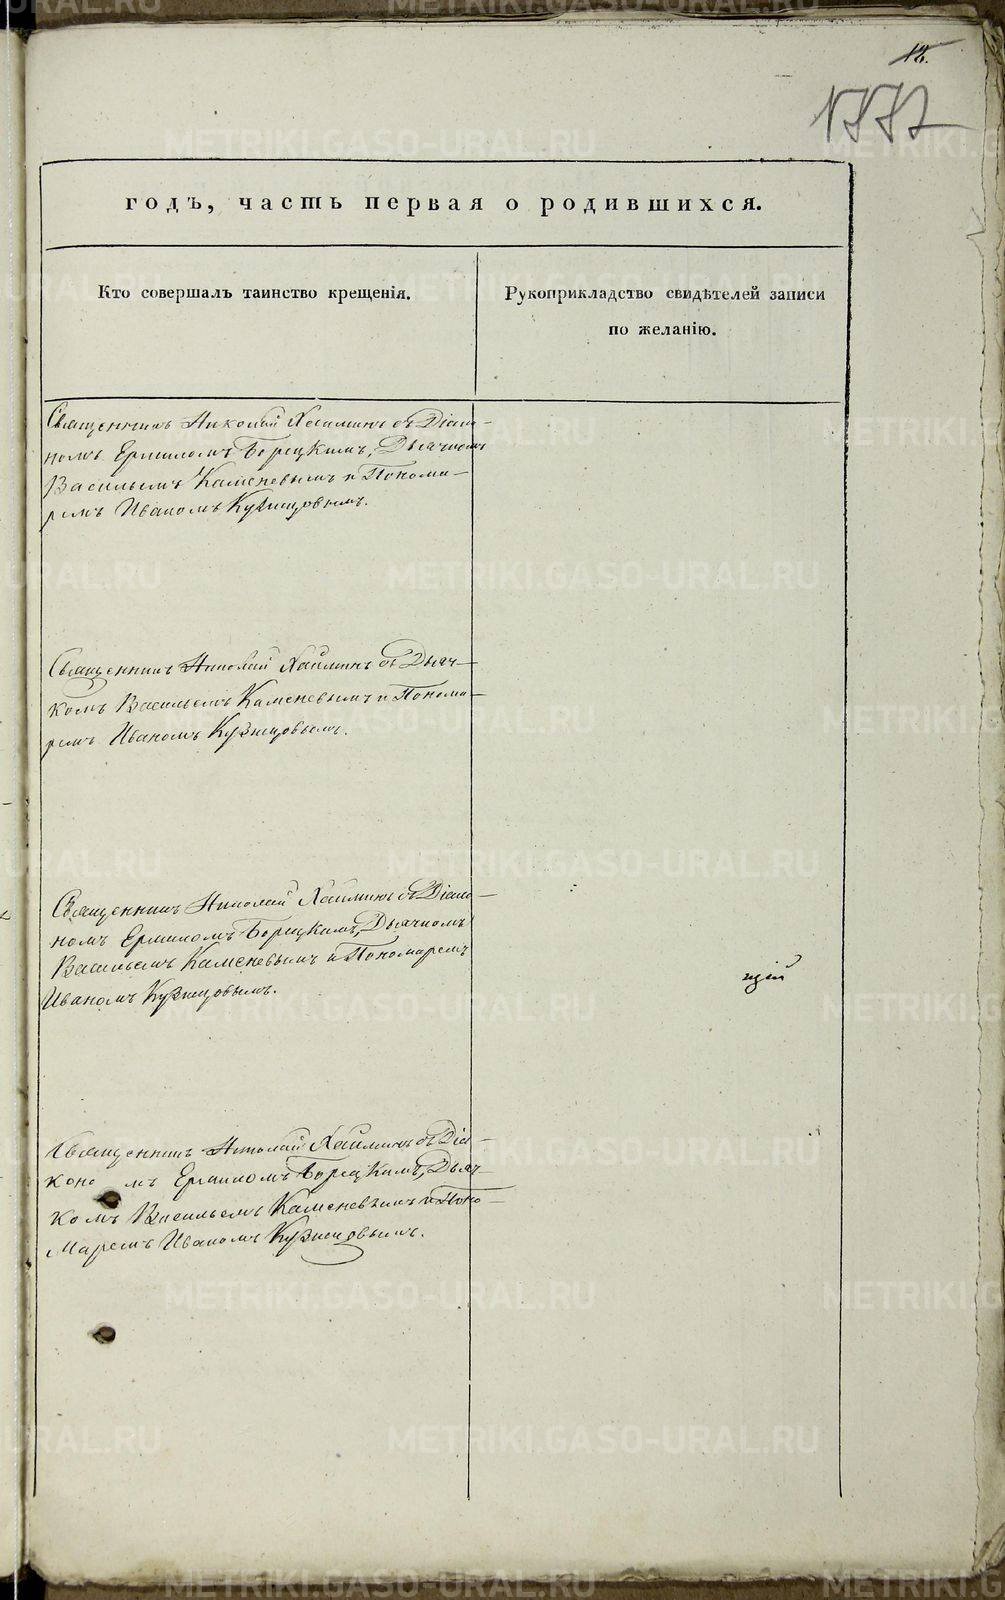 18.
годъ, часть первая о родившихся.
Кто совершалъ таинство крещенія.
Рукоприкладство свидѣтелей записи
по желанію.
Священникъ Николай Хаилинъ съ Діако-
номъ Ермиломъ Борецкимъ, Дьячкомъ
Васильемъ Каменевымъ и Понома-
ремъ Иваномъ Кузнецовымъ.
Священникъ Николай съ Дьяч-
комъ Васильемъ Каменевымъ и Понома-
ремъ Иваномъ Кузнецовымъ.
Священникъ Николай съ Діако-
номъ Ермиломъ Борецкимъ, Дьячкомъ
Васильемъ Каменевымъ и Пономаремъ
Иваномъ Кузнецовымъ.
щій
Священникъ Николай съ Діа-
кономъ Ермиломъ Борецкимъ, Дьяч-
комъ Васильемъ Каменевымъ и Поно-
маремъ Иваномъ Кузнецовымъ.
METRIKI.GASO-URAL.RU